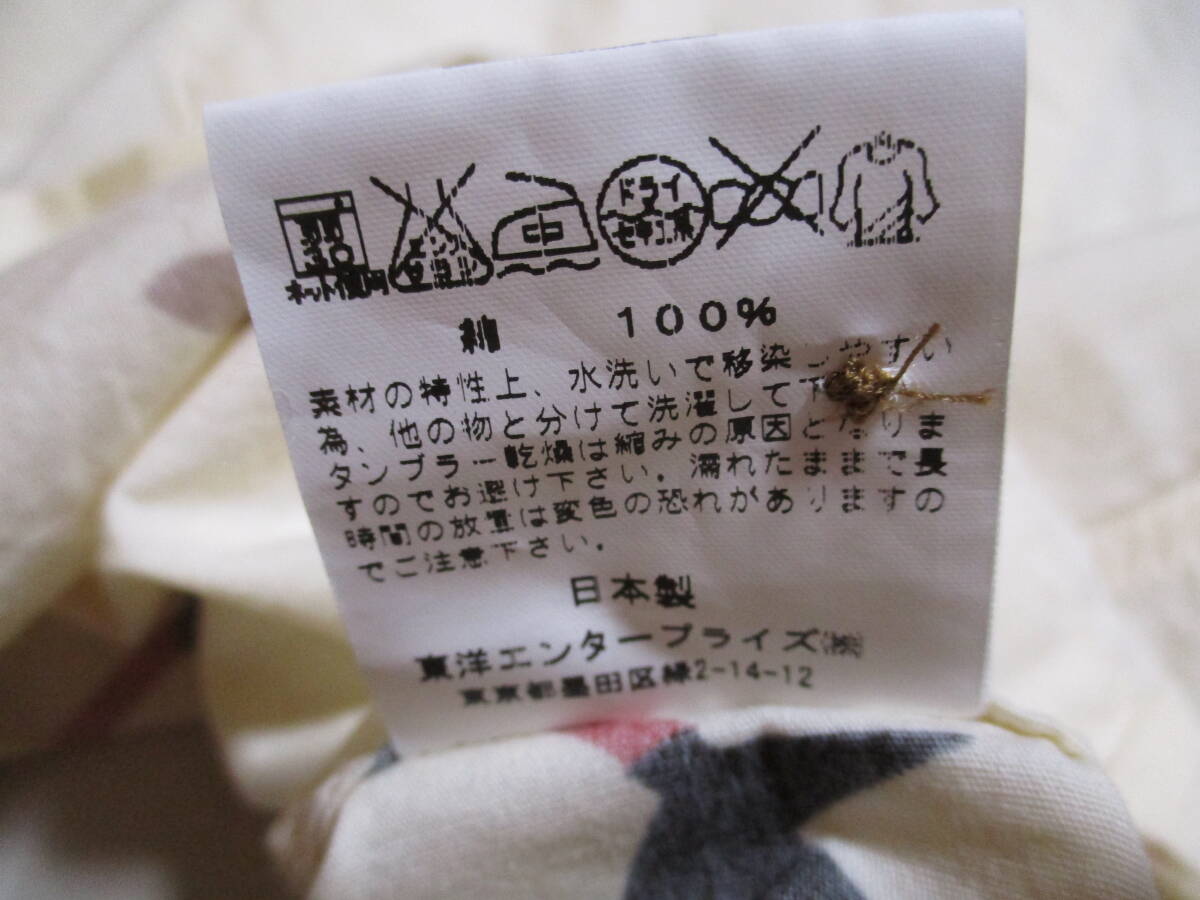 ドライ
セキユ系
ネット使用
綿 100%
素材の特性上、水洗いで移染しやすい
為、他の物と分けて洗濯して下
タンブラー乾燥は縮みの原因となりま
すのでお避け下さい．濡れたままで長
時間の放置は変色の恐れがありますの
でご注意下さい．
日本製
東洋エンタープライズ㈱
東京都墨田区緑2-14-12